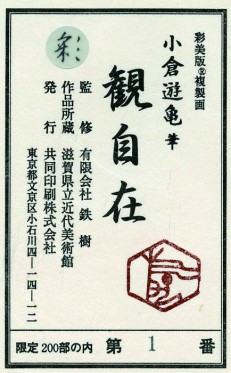 彩美版®複製画
小倉遊亀 筆
観自在
彩
監修 有限会社 鉄樹
作品所蔵 滋賀県立近代美術館
発行 共同印刷株式会社
東京都文京区小石川四―一四―一二
限定200部の内 第 1 番